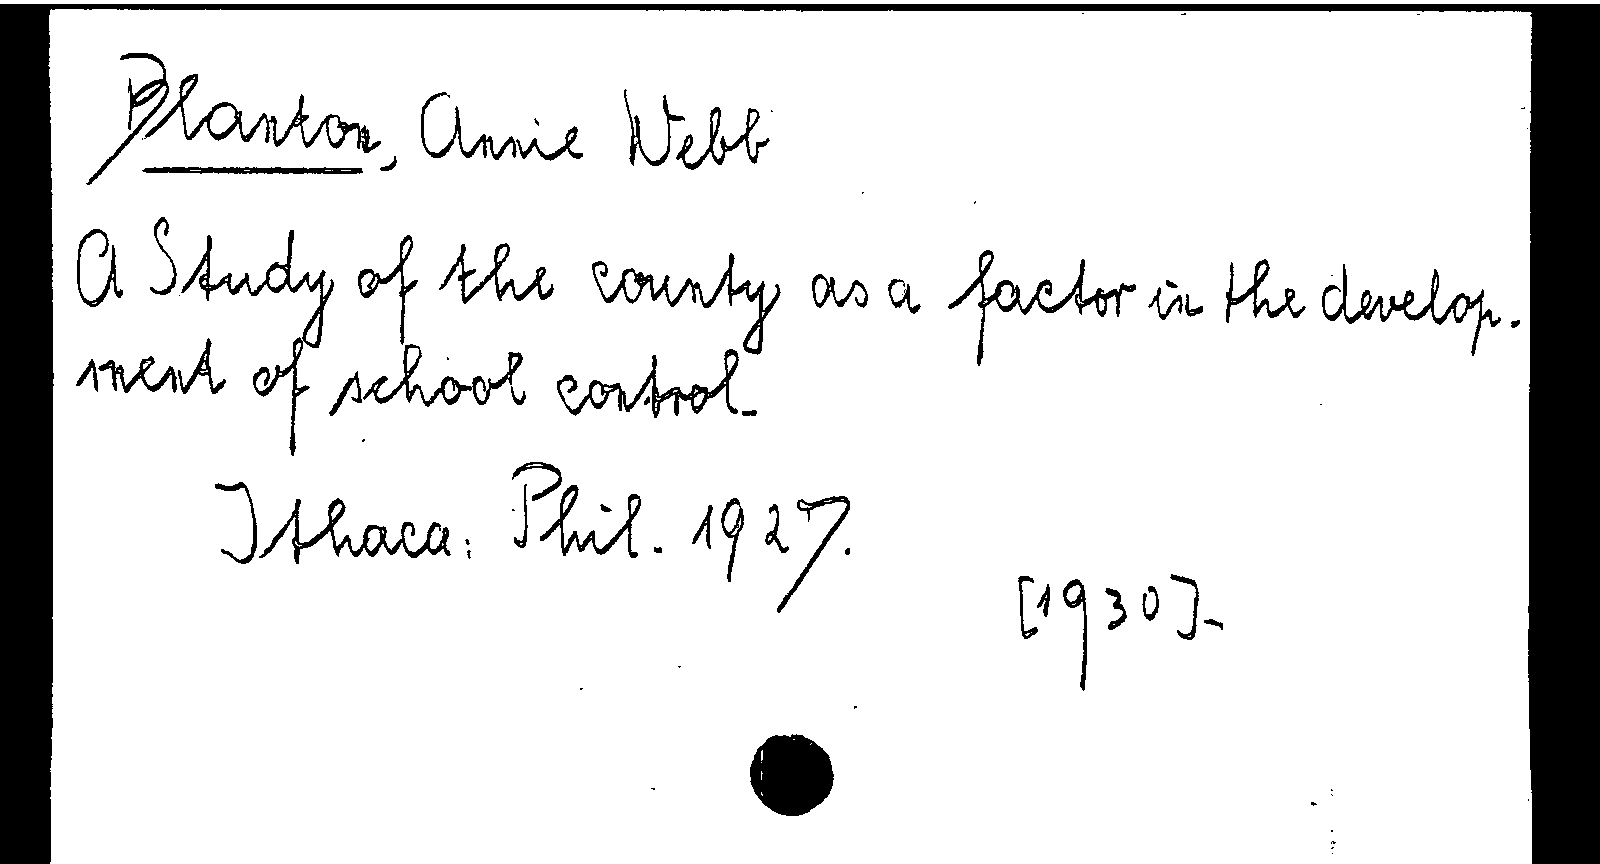 Blanton, Annie Webb
A Study of the county as a factor in the develop-
ment of school control.
Ithaca: Phil. 1927.
[1930].